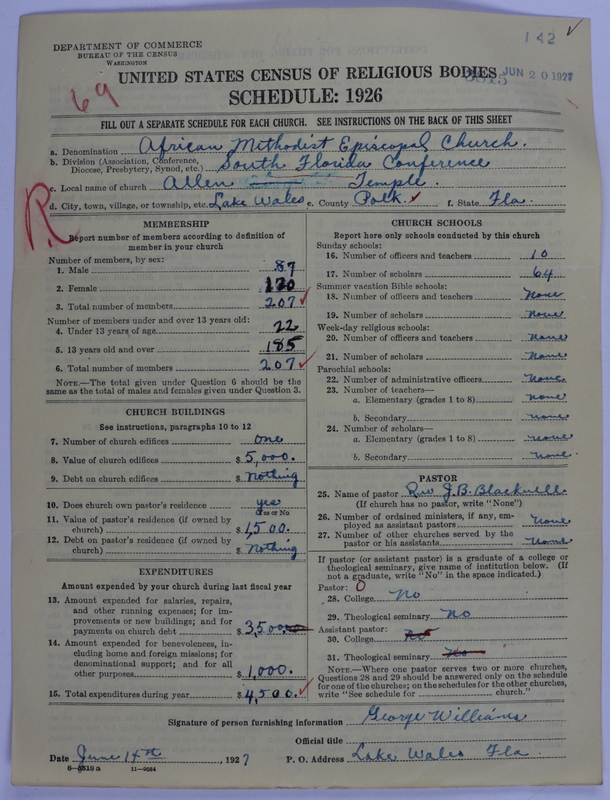 142 ✓
DEPARTMENT OF COMMERCE
BUREAU OF THE CENSUS
WASHINGTON
JUN 20 1927
UNITED STATES CENSUS OF RELIGIOUS BODIES
69
SCHEDULE: 1926
FILL OUT A SEPARATE SCHEDULE FOR EACH CHURCH. SEE INSTRUCTIONS ON THE BACK OF THIS SHEET
a. Denomination African Methodist Episcopal Church.
b. Division (Association, Conference, Diocese, Presbytery, Synod, etc.) South Florida Conference
c. Local name of church Allen Temple.
R.
d. City, town, village, or township, etc. Lake Wales e. County Polk ✓ f. State Fla.
MEMBERSHIP
Report number of members according to definition of
member in your church
Number of members, by sex:
1. Male 87
2. Female 120
3. Total number of members 207 ✓
Number of members under and over 13 years old:
4. Under 13 years of age 22
5. 13 years old and over 185
6. Total number of members 207 ✓
NOTE.—The total given under Question 6 should be
same as the total of males and females given under Question 3.
CHURCH BUILDINGS
See instructions, paragraphs 10 to 12
7. Number of church edifices One
8. Value of church edifices $ 5,000.
9. Debt on church edifices $ Nothing
10. Does church own pastor's residence yes
Yes or No
11. Value of pastor's residence (if owned by
church) $ 1,500.
12. Debt on pastor's residence (if owned by
church) $ Nothing
EXPENDITURES
Amount expended by your church during last fiscal year
13. Amount expended for salaries, repairs,
and other running expenses; for im-
provements or new buildings; and for
payments on church debt $ 3,500
14. Amount expended for benevolences, in-
cluding home and foreign missions; for
denominational support; and for all
other purposes $ 1,000.
15. Total expenditures during year $ 4,500. ✓
CHURCH SCHOOLS
Report here only schools conducted by this church
Sunday schools:
16. Number of officers and teachers 10
17. Number of scholars 64
Summer vacation Bible schools:
18. Number of officers and teachers None
19. Number of scholars None
Week-day religious schools:
20. Number of officers and teachers None
21. Number of scholars None
Parochial schools:
22. Number of administrative officers None
23. Number of teachers—
a. Elementary (grades 1 to 8) None
b. Secondary None
24. Number of scholars—
a. Elementary (grades 1 to 8) None
b. Secondary None
PASTOR
25. Name of pastor Rev J.B. Blacknell
(If church has no pastor, write "None")
26. Number of ordained ministers, if any, em-
ployed as assistant pastors None
27. Number of other churches served by the
pastor or his assistants None
If pastor (or assistant pastor) is a graduate of a college or
theological seminary, give name of institution below. (If
not a graduate, write "No" in the space indicated.)
Pastor: 0
28. College No
29. Theological seminary No
Assistant pastor:
30. College No
31. Theological seminary No
NOTE.—Where one pastor serves two or more churches,
Questions 28 and 29 should be answered only on the schedule
for one of the churches; on the schedules for the other churches,
write "See schedule for church."
Signature of person furnishing information George Williams
Official title
Date June 14th, 1927 P. O. Address Lake Wales Fla.
8—5518 a 11—9684